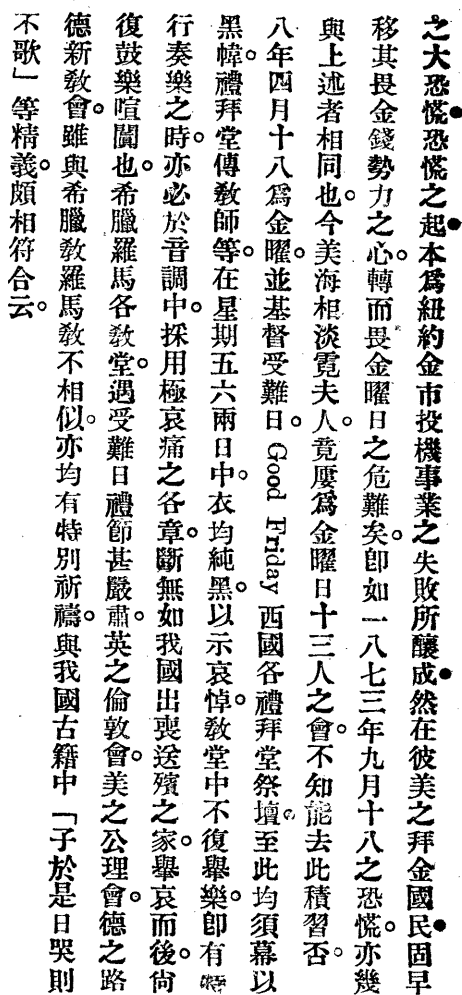 之大恐慌恐慌之起本爲紐約金市投機事業之失敗所釀成然在彼美之拜金國民固早
移其畏金錢勢力之心。轉而畏金曜日之危難矣。卽如一八七三年九月十八之恐慌。亦幾
與上述者相同也。今美海相淡霓夫人。竟屢爲金曜日十三人之會。不知能去此積習否。
八年四月十八爲金曜。並基督受難日。Good Friday 西國各禮拜堂祭壇。至此均須幕以
黑幃。禮拜堂傳敎師等。在星期五六兩日中。衣均純黑。以示哀悼。敎堂中不復舉樂。卽有特
行奏樂之時。亦必於音調中。採用極哀痛之各章。斷無如我國出喪送殯之家。舉哀而後。尙
復鼓樂喧闐也。希臘羅馬各敎堂。遇受難日禮節甚嚴肅。英之倫敦會。美之公理會。德之路
德新敎會。雖與希臘敎羅馬敎不相似。亦均有特別祈禱。與我國古籍中「子於是日哭則
不歌」等精義。頗相符合云。